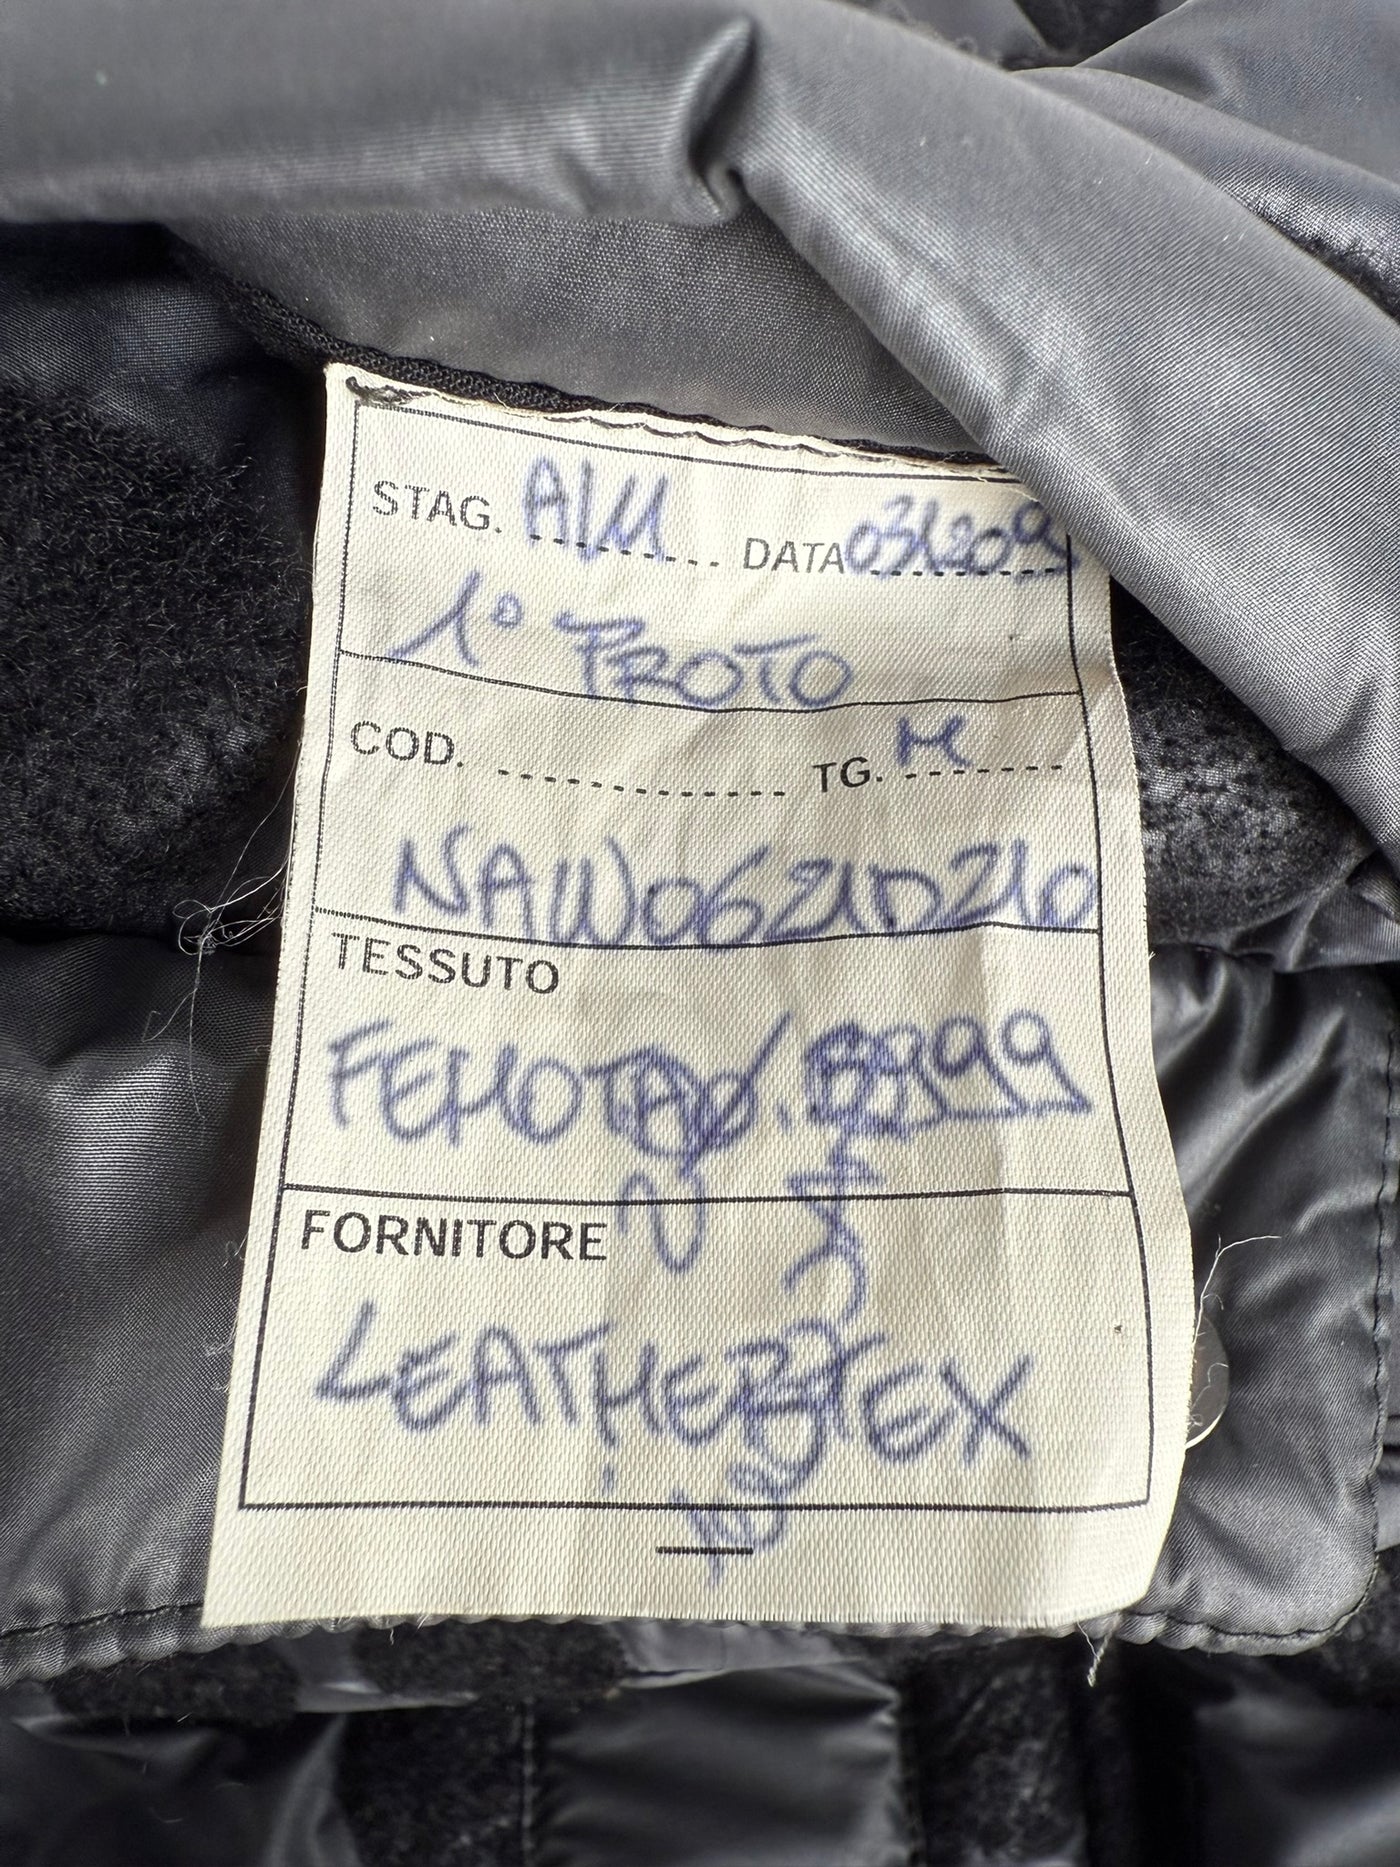 STAG. A/11 DATA 03/209
1° PROTO
COD. TG. M
NAW0621D210
TESSUTO
8399
FORNITORE
LEATHERTEX